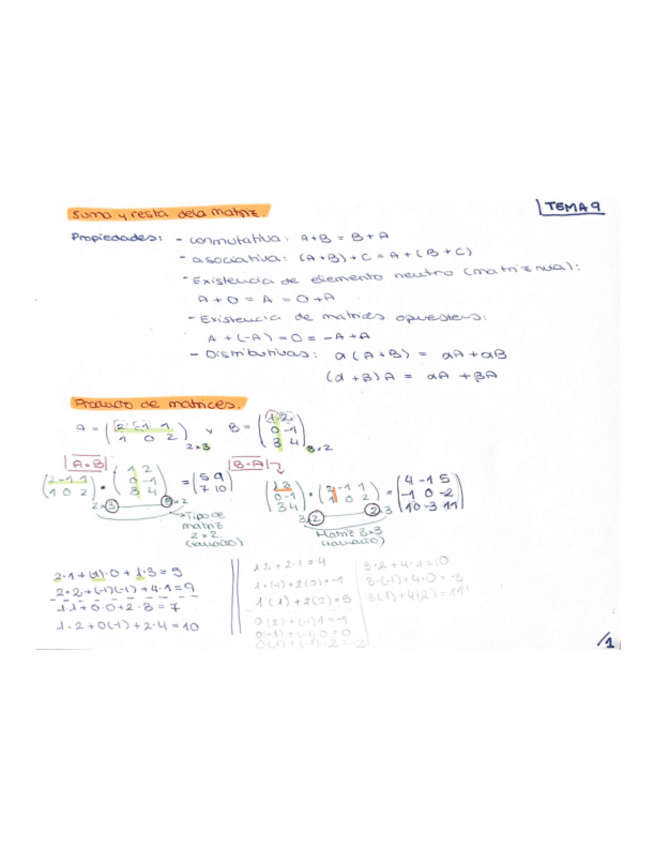 Suma y resta de la matriz.
TEMA 9
Propiedades: - conmutativa: A+B = B+A
- asociativa: (A+B)+C = A+(B+C)
- Existencia de elemento neutro (matriz nula):
A+O = A = O+A
- Existencia de matrices opuestas:
A+(-A) = O = -A+A
- Distributivas: α(A+B) = αA+αB
(α+β)A = αA+βA
Producto de matrices.
A = (2 -1 1 / 1 0 2) 2x3 y B = (1 2 / 0 -1 / 3 4) 3x2
A·B
B·A
(2 -1 1 / 1 0 2) · (1 2 / 0 -1 / 3 4) = (5 9 / 7 10)
2x3 3x2
Tipo de
matriz
2x2.
(tamaño)
(1 2 / 0 -1 / 3 4) · (2 -1 1 / 1 0 2) = (4 -1 5 / -1 0 -2 / 10 -3 11)
3x2 2x3
Matriz 3x3
(tamaño)
2·1+(-1)·0+1·3=5
2·2+(-1)(-1)+4·1=9
1·1+0·0+2·3=7
1·2+0(-1)+2·4=10
1·2+2·1=4
1·(-1)+2(0)=-1
1(1)+2(2)=5
0(2)+(-1)1=-1
0(-1)+(-1)·0=0
0(1)+(-1)·2=-2
3·2+4·1=10
3·(-1)+4·0=-3
3(1)+4(2)=11
/1